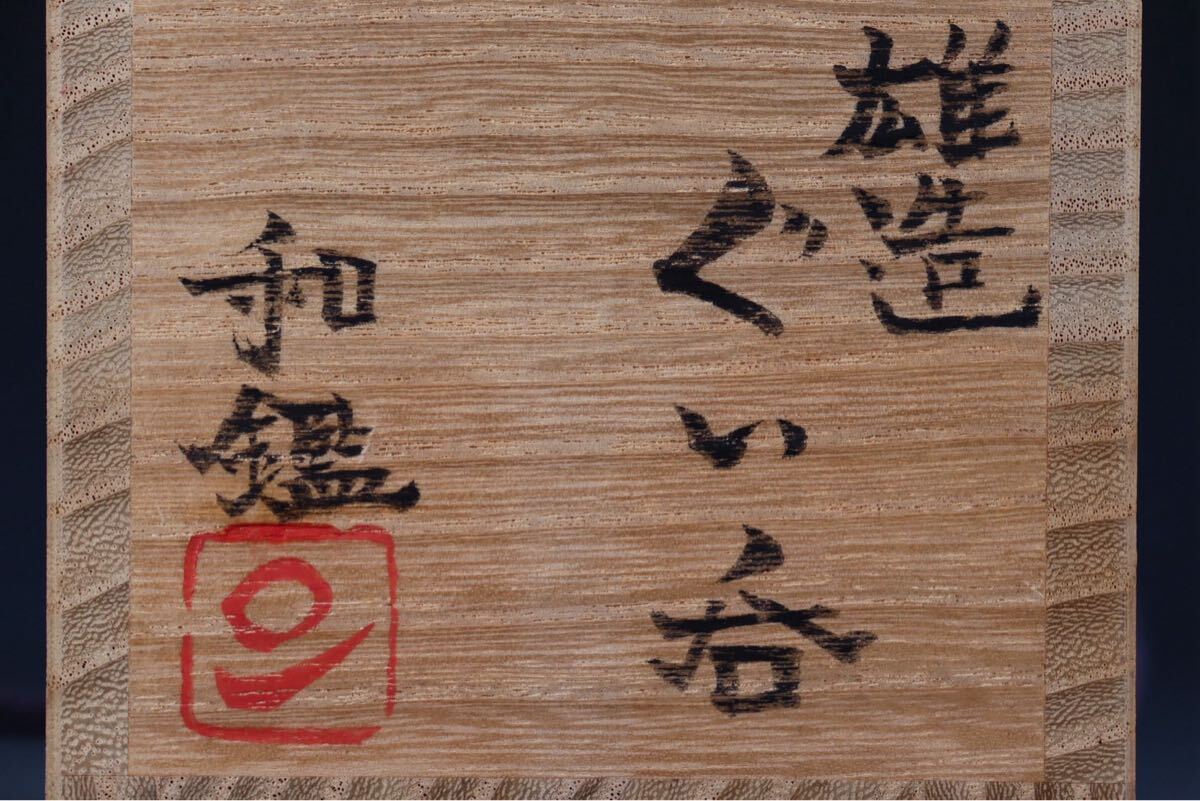 雄造
ぐい呑
和鑑